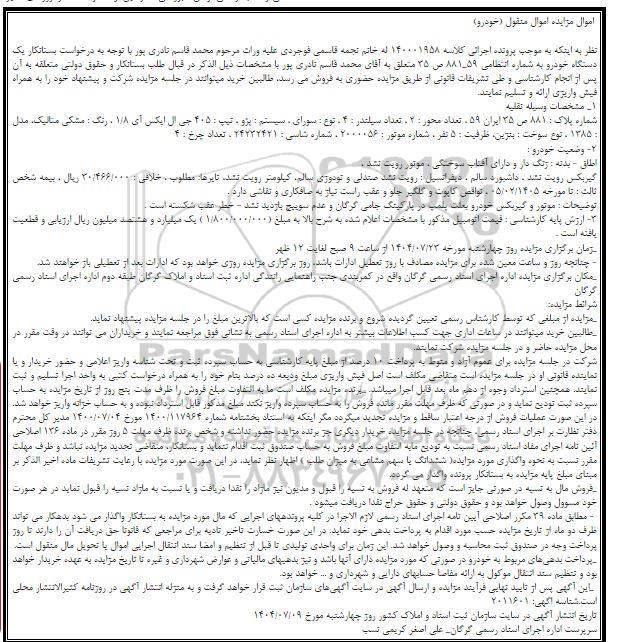 اموال مزایده اموال منقول (خودرو)
نظر به اینکه به موجب پرونده اجرائی کلاسه ۱۴۰۰۰۱۹۵۸ له خانم نجمه قاسمی فوجردی علیه وراث مرحوم محمد قاسم نادری پور با توجه به درخواست بستانکار یک
دستگاه خودرو به شماره انتظامی ۵۹_۸۸۱ ص ۳۵ متعلق به آقای محمد قاسم نادری پور با مشخصات ذیل الذکر در قبال طلب بستانکار و حقوق دولتی متعلقه به آن
پس از انجام کارشناسی و طی تشریفات قانونی از طریق مزایده حضوری به فروش می رسد، طالبین خرید میتوانند در جلسه مزایده شرکت و پیشنهاد خود را به همراه
فیش واریزی ارائه و تسلیم نمایند.
۱_ مشخصات وسیله نقلیه
شماره پلاک : ۸۸۱ ص ۳۵ ایران ۵۹ ، تعداد محور : ۲ ، تعداد سیلندر : ۴ ، نوع : سواری ، سیستم : پژو ، تیپ : ۴۰۵ جی ال ایکس آی ۱/۸ ، رنگ : مشکی متالیک، مدل
: ۱۳۸۵ ، نوع سوخت : بنزین، ظرفیت : ۵ نفر ، شماره موتور : ۲۰۰۰۰۵۶ ، شماره شاسی : ۲۴۲۳۲۴۲۱ ، تعداد چرخ : ۴
۲- وضعیت خودرو :
اطاق - بدنه : زنگ دار و دارای آفتاب سوختگی ، موتور رویت نشد ،
گیربکس رویت نشد ، داشبورد سالم ، دیفرانسیل : رویت نشد صندلی و تودوزی سالم، کیلومتر رویت نشد، تایرها: مطلوب ، خلافی : ۳۰/۴۶۶/۰۰۰ ریال ، بیمه شخص
ثالث : تا مورخه ۰۵/۰۲/۱۴۰۵ ، نواقص کاپوت و گلگیر جلو و عقب راست نیاز به صافکاری و نقاشی دارد .
توضیحات : موتور و گیربکس خودرو بعلت پلمب در پارکینگ جامی گرگان و عدم سوییچ بازدید نشد - خطر عقب شکسته است .
۳- ارزش پایه کارشناسی : قیمت اتومبیل مذکور با مشخصات اعلام شده به شرح بالا به مبلغ (۱/۸۰۰/۰۰۰/۰۰۰ ) یک میلیارد و هشتصد میلیون ریال ارزیابی و قطعیت
یافته است .
_زمان برگزاری مزایده روز چهارشنبه مورخه ۱۴۰۴/۰۷/۲۳ از ساعت ۹ صبح لغایت ۱۲ ظهر
- چنانچه روز و ساعت معین شده برای مزایده مصادف با روز تعطیل ادارات باشد، روز برگزاری مزایده روزی خواهد بود که ادارات بعد از تعطیلی باز خواهند شد.
_مکان برگزاری مزایده اداره اجرای اسناد رسمی گرگان واقع در کمربندی جنب راهنمایی رانندگی اداره ثبت اسناد و املاک گرگان طبقه دوم اداره اجرای اسناد رسمی
گرگان
شرائط مزایده:
_مزایده از مبلغی که توسط کارشناس رسمی تعیین گردیده شروع و برنده مزایده کسی است که بالاترین مبلغ را در جلسه مزایده پیشنهاد نماید.
_طالبین خرید میتوانند در ساعات اداری جهت کسب اطلاعات بیشتر به اداره اجرای اسناد رسمی به نشانی فوق مراجعه نمایند و خریداران می توانند در وقت مقرر در
محل مزایده حاضر و در جلسه مزایده شرکت نمایند.
شرکت در جلسه مزایده برای عموم آزاد و منوط به پرداخت ۱۰ درصد از مبلغ پایه کارشناسی به حساب سپرده ثبت و تحت شناسه واریز اعلامی و حضور خریدار و یا
نماینده قانونی او در جلسه مزایده است متقاضی مکلف است اصل فیش واریزی مبلغ ودیعه ده درصد بنام خود را به همراه درخواست کتبی به واحد اجرا تسلیم و ثبت
نمایند. همچنین استرداد وجوه از دهم ماه بعد قابل اجرا میباشد. برنده مزایده مکلف است مابه التفاوت مبلغ فروش را ظرف مدت پنج روز از تاریخ مزایده به حساب
سپرده ثبت تودیع نماید و در صورتی که ظرف مهلت مقرر مانده فروش را به حساب سپرده واریز نکند مبلغ مذکور قابل استرداد نبوده و به حساب خزانه واریز خواهد شد.
در این صورت عملیات فروش از درجه اعتبار ساقط و مزایده تجدید میگردد مگر اینکه به استناد بخشنامه شماره ۱۴۰۰/۱۱۷۹۶۴ مورخ ۱۴۰۰/۰۷/۰۴ مدیر کل محترم
دفتر نظارت بر اجرای اسناد رسمی، چنانچه در جلسه مزایده خریدار دیگری جز برنده مزایده حضور نداشته و شخص برنده ظرف مهلت ۵ روز مقرر در ماده ۱۳۶ اصلاحی
آئین نامه اجرای مفاد اسناد رسمی نسبت به تودیع مابه التفاوت مبلغ فروش به حساب صندوق ثبت اقدام ننماید و بستانکار، متقاضی تجدید مزایده نباشد و ظرف مهلت
مقرر نسبت به نحوه واگذاری مورد مزایده( ششدانگ یا سهم مشاعی به میزان طلب ) اظهار نظر نماید، در این صورت مورد مزایده با رعایت تشریفات ماده اخیر الذکر بر
مبنای مبلغ پایه مزایده به بستانکار پرونده واگذار می گردد
_فروش مال به نسیه در صورتی جایز است که متعهد له فروش به نسیه را قبول و مدیون نیز مازاد را نقدا دریافت و یا نسبت به مازاد نسیه را قبول نماید در هر صورت
خود مسوول وصول خواهد بود و حقوق دولتی و حقوق حراج نقدا دریافت میشود .
- مطابق ماده ۳۹ مکرر اصلاحی آیین نامه اجرای اسناد رسمی لازم الاجرا در کلیه پروندههای اجرایی که مال مورد مزایده به بستانکار واگذار می شود بدهکار می تواند
ظرف دو ماه از تاریخ مزایده حسب مورد اقدام به پرداخت بدهی خود نماید. در این صورت خسارت تاخیر تادیه برای مراجعی که قانونا حق دریافت آن را دارند تا روز
پرداخت وجه در صندوق ثبت محاسبه و وصول خواهد شد. این زمان برای واحدی تولیدی تا قبل از تنظیم و امضا سند انتقال اجرایی اموال یا تحویل مال منقول است.
_پرداخت بدهی‌های مربوط به خودرو در صورتی که مورد مزایده دارای آنها باشد و نیز بدهیهای مالیاتی و عوارض شهرداری و غیره تا تاریخ مزایده به عهده خریدار خواهد
بود و تنظیم سند انتقال موکول به ارائه مفاصا حسابهای دارایی و شهرداری و ... خواهد بود.
_این آگهی پس از تایید نهایی فرآیند مزایده و ارسال آگهی در سایت آگهی‌های سازمان ثبت قرار خواهد گرفت و به منزله انتشار آگهی در روزنامه کثیرالانتشار محلی
است.شناسه آگهی: ۲۰۱۱۶۰۱
تاریخ انتشار آگهی در سایت سازمان ثبت اسناد و املاک کشور روز چهارشنبه مورخ ۱۴۰۴/۰۷/۰۹
سرپرست اداره اجرای اسناد رسمی گرگان_ علی اصغر کریمی نسب